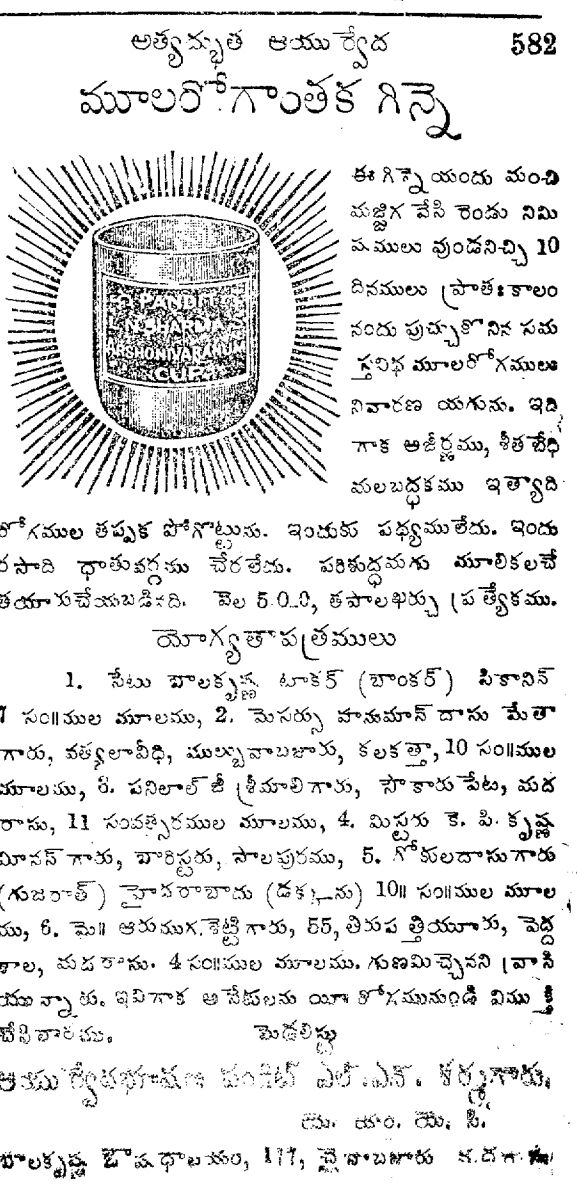 అత్యద్భుత ఆయుర్వేద 582
మూలరోగాంతక గిన్నె
ఈ గిన్నె యందు మంచి
మజ్జిగ వేసి రెండు నిమి
షములు వుండనిచ్చి 10
దినములు ప్రాతఃకాలం
నందు పుచ్చుకొనిన సమ
స్తవిధ మూలరోగములు
నివారణ యగును. ఇది
గాక అజీర్ణము, శీతబేధి
మలబద్ధకము ఇత్యాది
PANDIT
L.N.SHARMA'S
ARSHONIVARANAM
CUP
రోగముల తప్పక పోగొట్టును. ఇందుకు పథ్యములేదు. ఇందు
రసాది ధాతువర్గము చేరలేదు. పరిశుద్ధమగు మూలికలచే
తయారుచేయబడినది. వెల 5_0_0, తపాలఖర్చు ప్రత్యేకము.
యోగ్యతాపత్రములు
1. సేటు బాలకృష్ణ టాకర్ (బాంకర్) పికానిన్
7 సం॥ముల మూలము, 2. మెసర్సు హనుమాన్ దాసు మేతా
గారు, వత్యలావీధి, ముల్బువాబజారు, కలకత్తా, 10 సం॥ముల
మూలము, 3. పనిలాల్ జీ శ్రీమాలిగారు, సౌకారుపేట, మద
రాసు, 11 సంవత్సరముల మూలము, 4. మిస్టరు కె. పి. కృష్ణ
మీనన్ గారు, బారిస్టరు, పాలపురము, 5. గోకులదాసుగారు
(గుజరాత్) హైదరాబాదు (డక్కను) 10॥ సం॥ముల మూల
ము, 6. మె॥ ఆరుముగ శెట్టిగారు, 55, తిరుపత్తియూరు, పెద్ద
కాల, మదరాసు. 4 సం॥ముల మూలము. గుణమిచ్చెనని వ్రాసి
యున్నారు. ఇవిగాక అనేకులను యీ రోగమునుండి విముక్తి
చేసినారము. మెడలిస్టు
ఆయుర్వేదభూషణ పండిట్ ఎల్.ఎన్. శర్మగారు,
యె. యం. యె. సి.
బాలకృష్ణ ఔషధాలయం, 177, చైనాబజారు మదరాసు